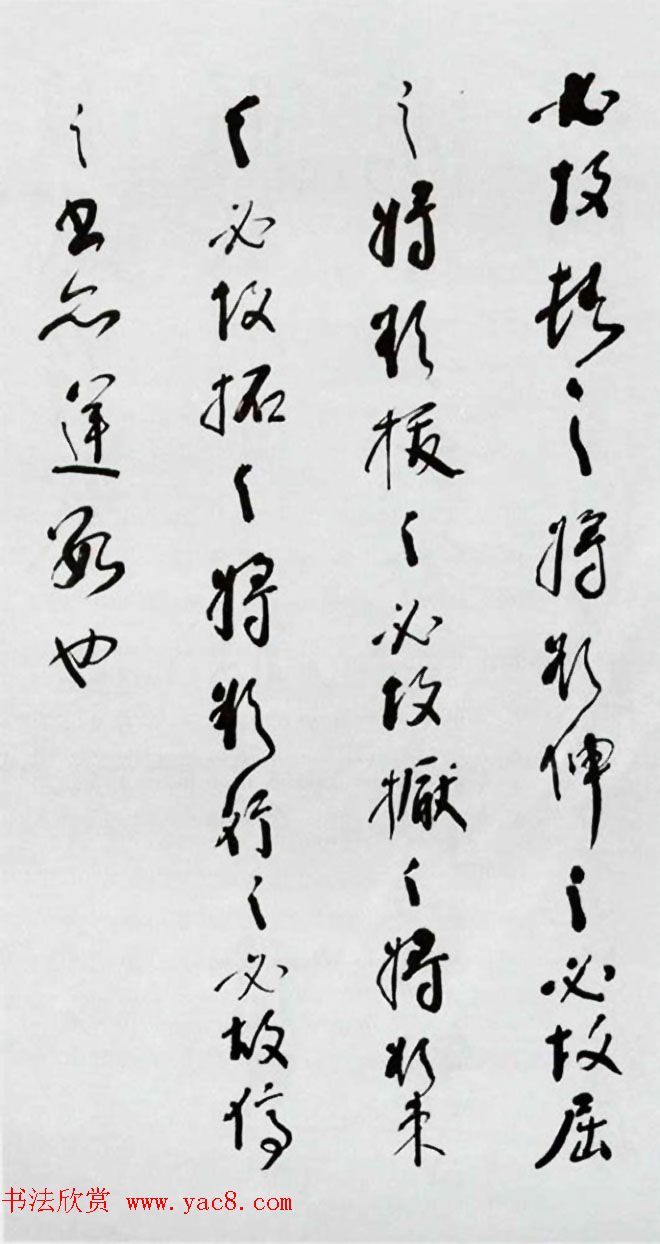 必故之將欲伸之必故屈
之將欲拔之必故擫之將欲束
之必故拓之將欲行之必故停
之書亦逆數也
书法欣赏 www.yac8.com